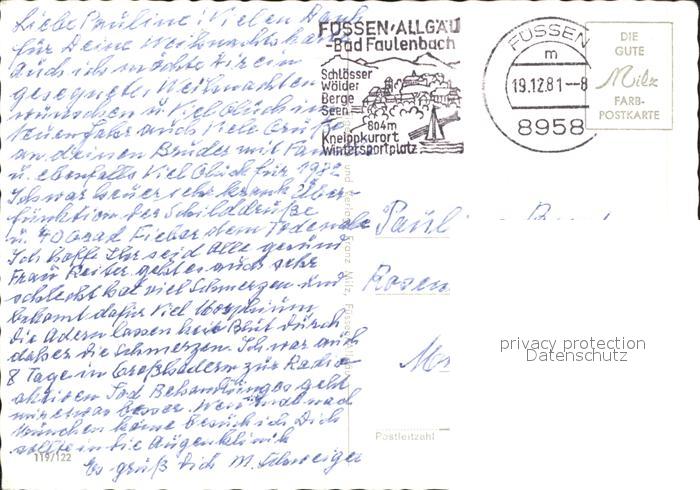 Liebe Pauline! Vielen Dank
für Deine Weihnachtskarte
Auch ich möchte Dir ein
gesegnetes Weihnachten
wünschen u. Viel Glück im
neuenjahr auch Viele Grüße
an deinen Bruder mit Fam
u. ebenfalls Viel Glück für 1982
Ich war heuer sehr krank Über-
funktion der Schilddrüße
u. 40 Grad Fieber dem Todenahe
Ich hoffe Ihr seid Alle gesund
Frau Reiter geht es auch sehr
schlecht hat viel Schmerzen und
bekomt dafür Viel Morphium
die Adern lassen kein Blut durch
daher die Schmerzen. Ich war auch
8 Tage in Großhadern zur Radio-
aktiven Jod Behandlung es geht
mir etwas besser. Wen ich nach
München kome besuch ich Dich
sollte in die Augenklinik
Es grüß Dich M. Schweiger
119/122
FÜSSEN/ALLGÄU
-Bad Faulenbach
Schlösser
Wälder
Berge
Seen
804m
Kneippkurort
Wintersportplatz
FÜSSEN
m
19.12.81-8
8958
DIE
GUTE
Milz
FARB-
POSTKARTE
Franz Milz, Füssen
Paul
Rosen
Postleitzahl
privacy protection
Datenschutz